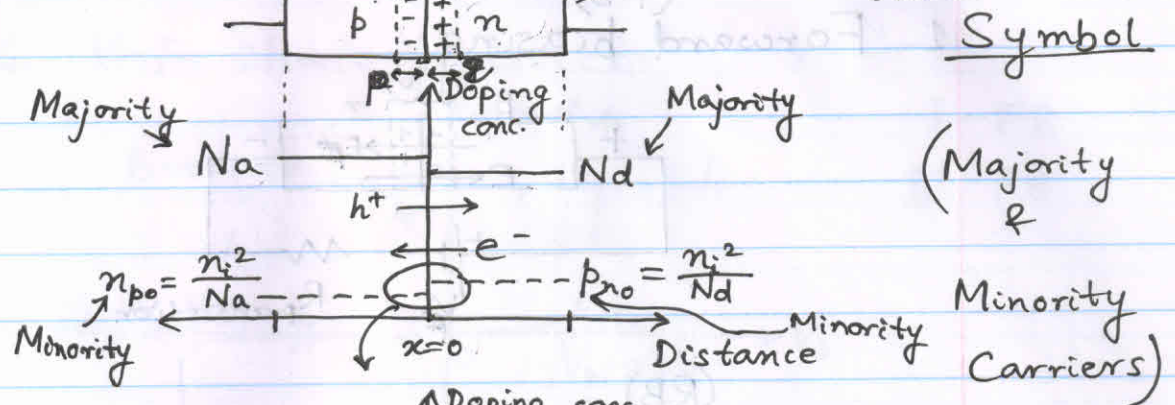 p - + n
Symbol
Doping
conc.
Majority
Majority
Na
Nd
(Majority
&
Minority
Carriers)
h⁺
e⁻
n_po = n_i²/Na
p_no = n_i²/Nd
Minority
Minority
x=0
Distance
Doping conc